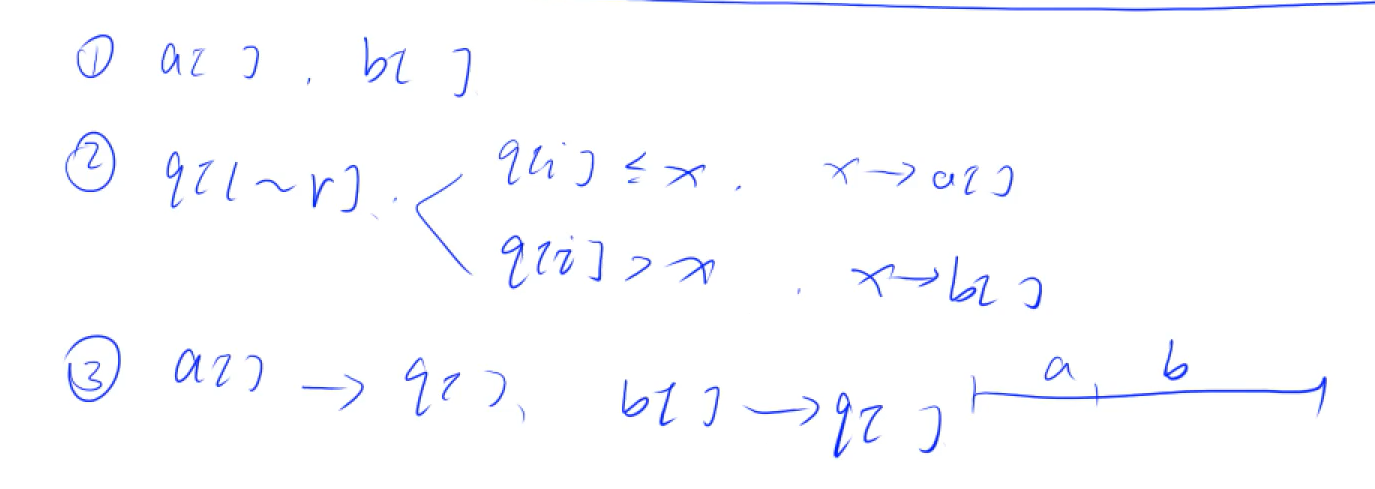 ① a[ ], b[ ]
② q[l~r]. q[i] ≤ x. x→a[]
q[i] > x. x→b[]
a b
③ a[] → q[], b[] → q[]